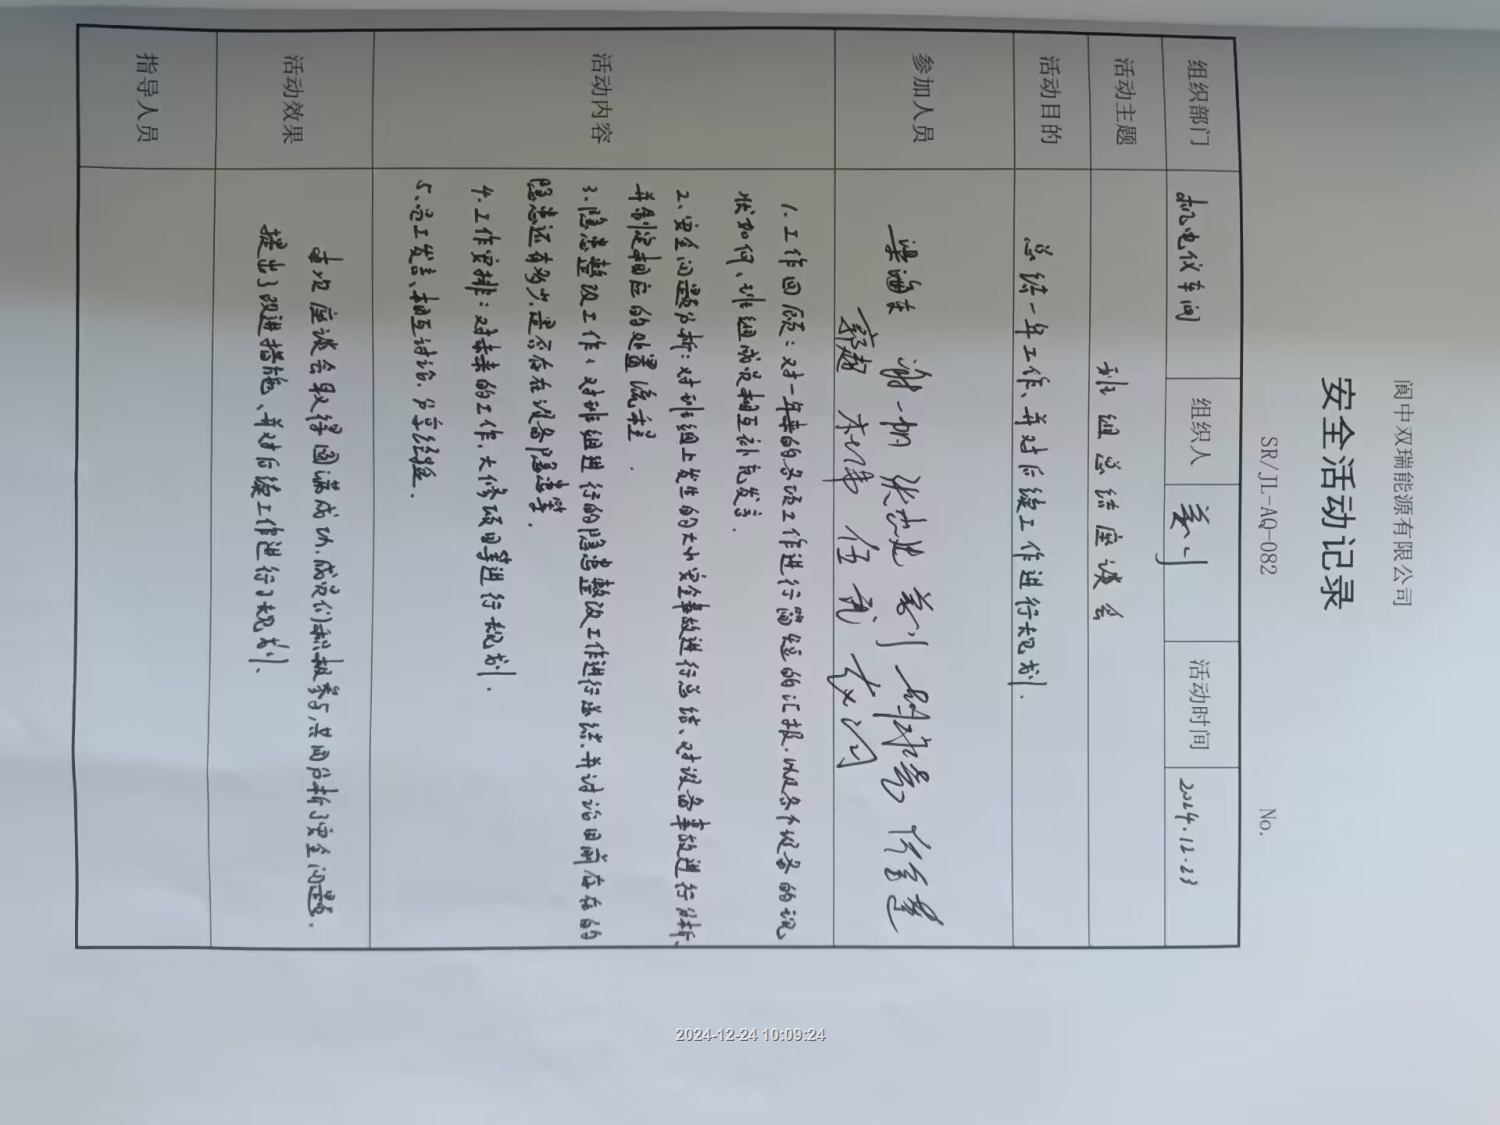 阆中双瑞能源有限公司
安全活动记录
SR/JL-AQ-082
No.
组织部门 机电仪车间 组织人 活动时间 2024.12.23
活动主题 班组总结座谈会
活动目的 总结一年工作、并对后续工作进行规划.
参加人员
郭超 伍
活动内容
1.工作回顾：对一年来的各项工作进行简短的汇报.以及各个设备的现
状如何、班组成员相互补充发言.
2、安全问题分析：对班组上发生的大小安全事故进行总结、对设备事故进行分析、
并制定相应的处置流程.
3.隐患整改工作：对班组进行的隐患整改工作进行总结.并讨论目前存在的
隐患还有多少.是否存在设备隐患等.
4.工作安排：对未来的工作.大修项目等进行规划.
5、员工发言、相互讨论.分享经验.
活动效果
本次座谈会取得圆满成功.成员们积极参与.共同分析了安全问题.
提出了改进措施、并对后续工作进行了规划.
指导人员
2024-12-24 10:09:24